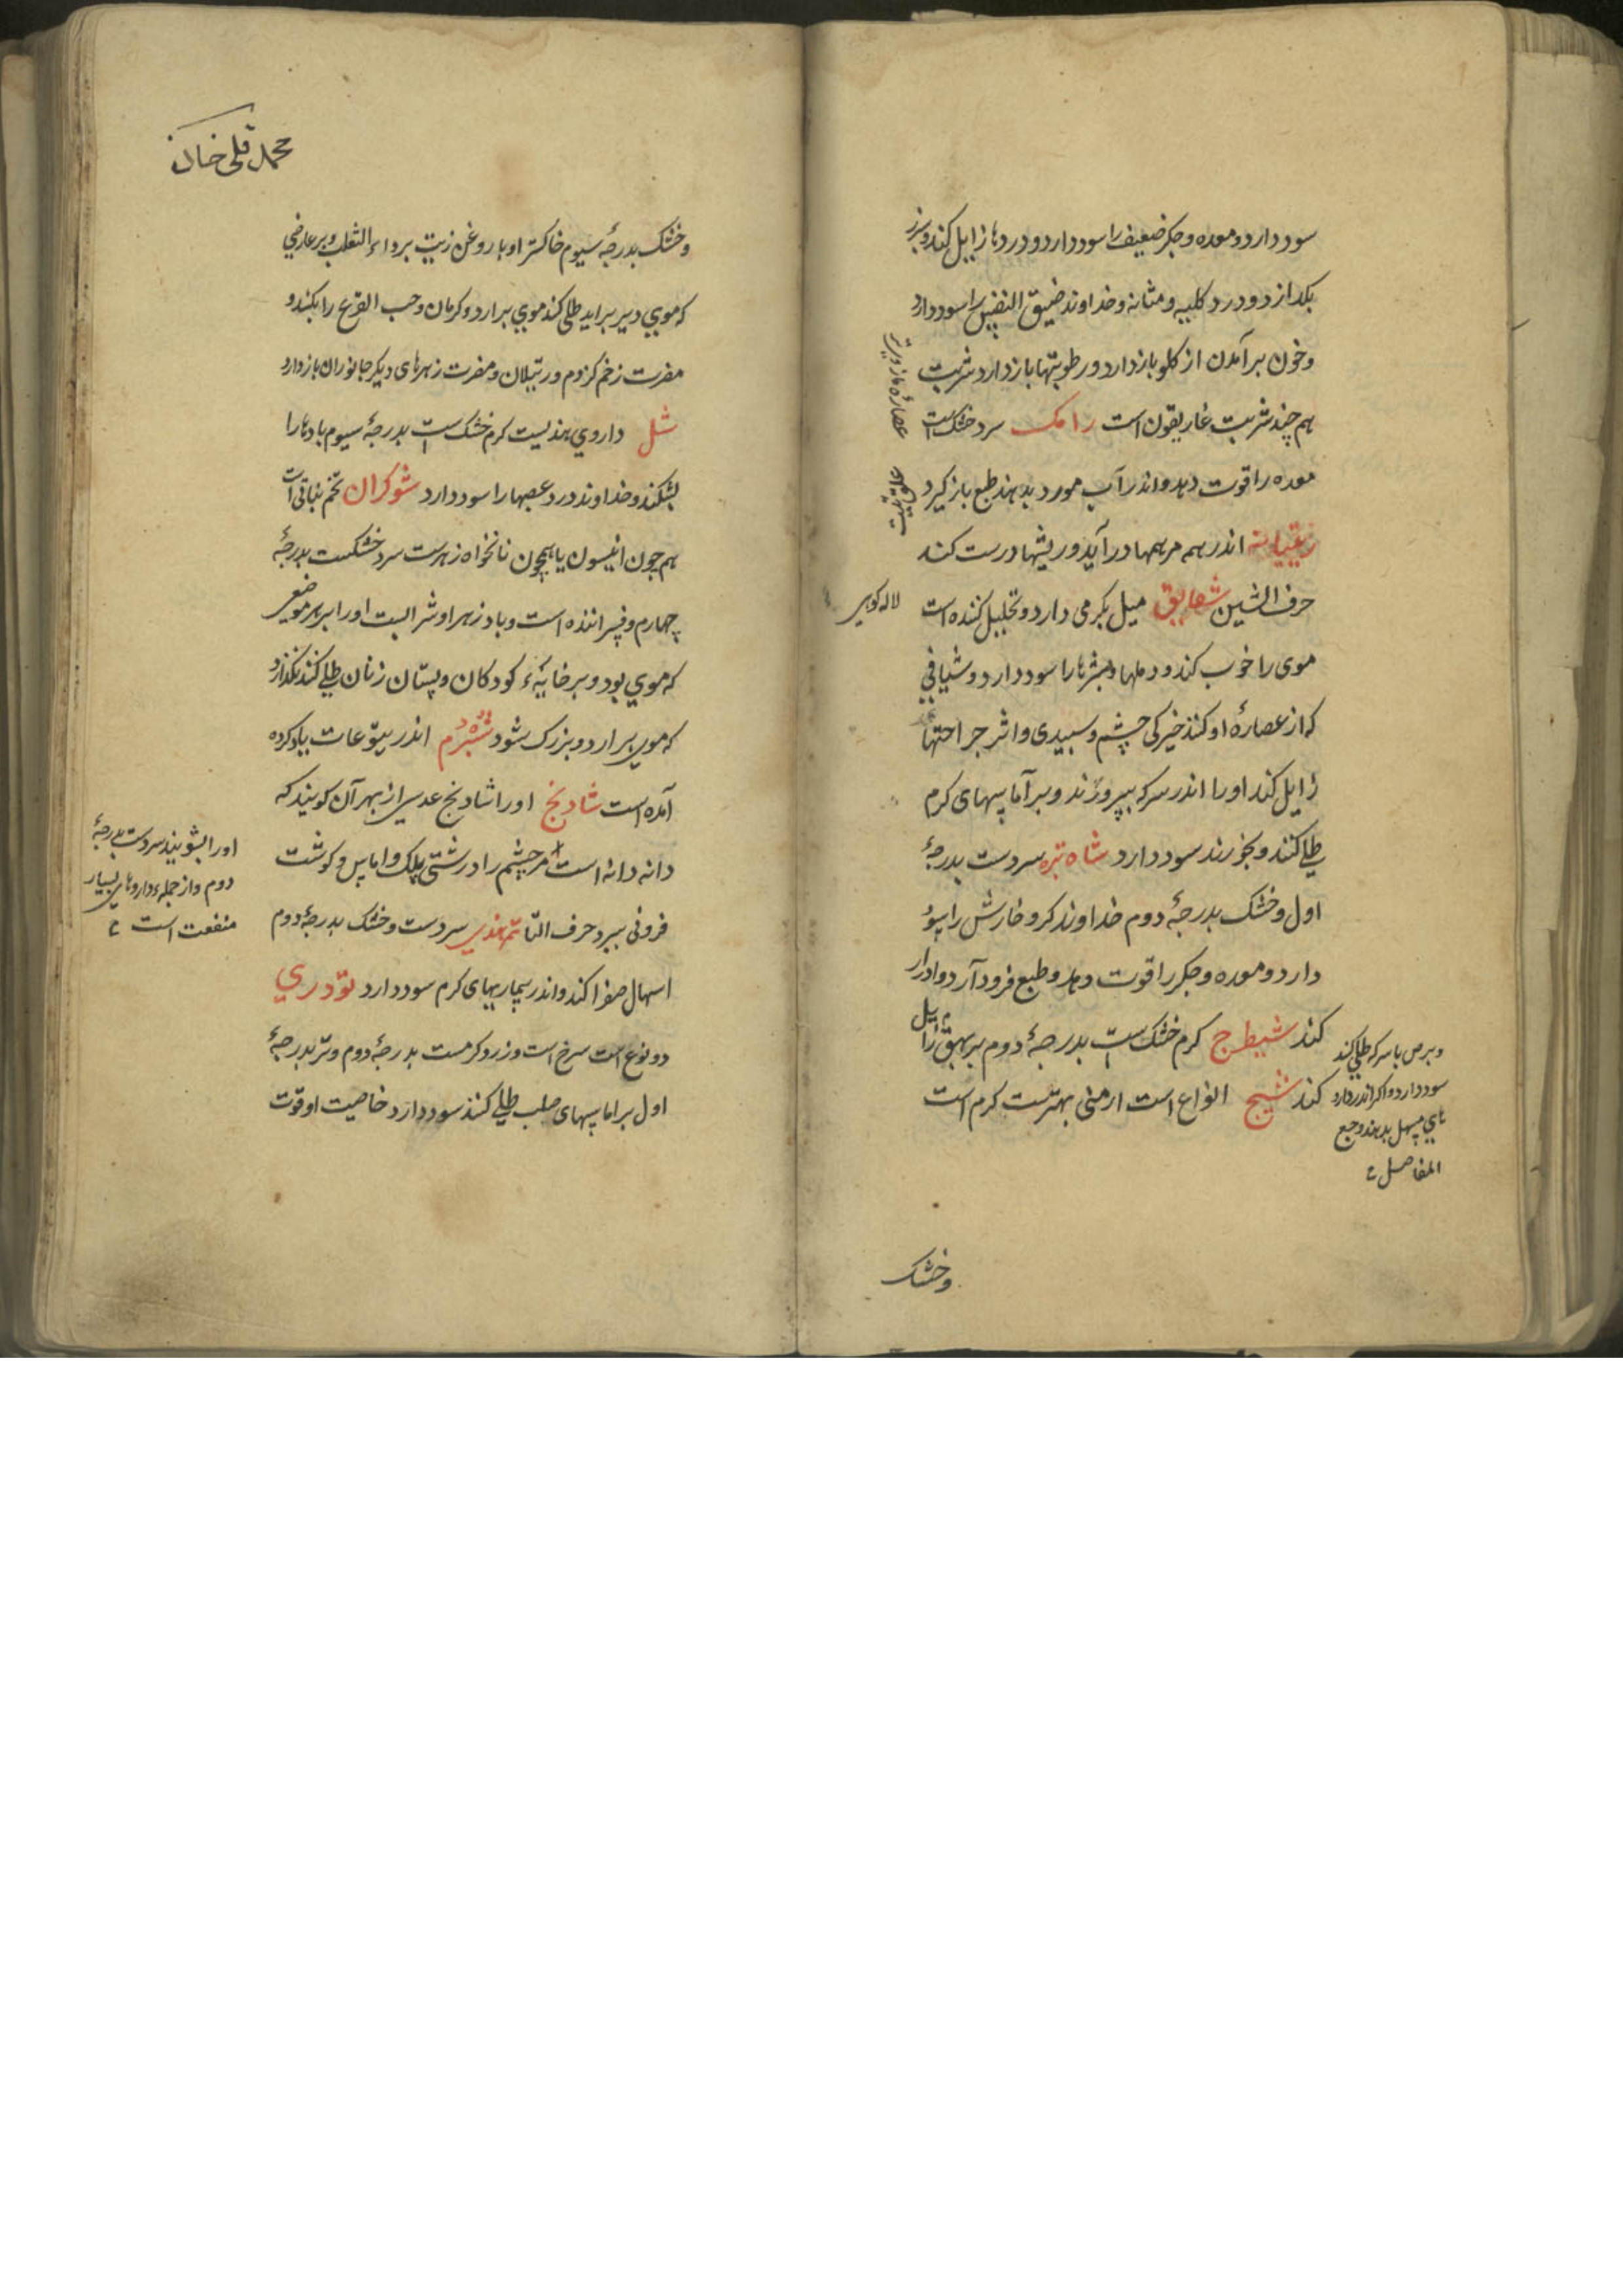 سود دارد و معده و جکر ضعیف را سود دارد و دردها زایل کند و سپرز
بکدازد و درد کلیه و مثانه و خداوند ضیق النفس را سود دارد
و خون برآمدن از کلو باز دارد و رطوبتها باز دارد شربت
هم چند شربت غاریقون است رامک سرد خشک است
معده را قوت دهد و اندر آب مورد بدهند طبع باز کیرد
اندر همه مرهمها درآید و ریشها درست کند
حرف الشین شقایق میل بکرمی دارد و تحلیل کننده است
لاله کوهی
موی را خوب کند و دملها و بثرها را سود دارد و شیافی
که از عصارهٔ او کنند خیرکی چشم و سپیدی و اثر جراحتها
زایل کند او را اندر سرکه بپروزند و بر آماسهای کرم
طلی کنند و بخورند سود دارد شاه تره سردست بدرجهٔ
اول و خشک بدرجهٔ دوم خداوند کر و خارش را سود
دارد و معده و جکر را قوت دهد و طبع فرود آرد و ادرار
کند شیطرج کرم خشک است بدرجهٔ دوم بر بهق زایل
کند شیح انواع است ارمنی بهترست کرم است
و برص با سرکه طلی کند
سود دارد و اکر اندر دارو
های مسهل بدهند وجع
المفاصل
وخشک
محمد قلی خان
و خشک بدرجهٔ سیوم خاکستر او با روغن زیت بر داء الثعلب و بر عارضی
که موی دیر براید طلی کند موی برارد و کرمان و حب القرع را بکشد و
مضرت زخم کزدم و رتیلان و مضرت زهرهای دیکر جانوران باز دارد
شل داروی هندیست کرم خشک است بدرجهٔ سیوم بادها را
بشکند و خداوند درد عصبها را سود دارد شوکران تخم نباتی است
هم چون انیسون یا همچون نانخواه زهرست سرد خشکست بدرجهٔ
چهارم و فسراننده است و باد زهر او شرابست او را بر هر موضعی
که موی بود و بر خایهٔ کودکان و پستان زنان طلی کنند نکذارد
که موی برارد و بزرک شود شبرم اندر یتوعات یاد کرده
آمده است شادنج او را شادنج عدسی از بهر آن کویند که
دانه دانه است مر چشم را درشتی پلک و اماس و کوشت
فزونی ببرد حرف التا تمر هندی سردست و خشک بدرجهٔ دوم
اسهال صفرا کند و اندر بیماریهای کرم سود دارد تودری
دو نوع است سرخ است و زرد کرمست بدرجهٔ دوم و تر بدرجهٔ
اول بر اماسهای صلب طلی کنند سود دارد خاصیت او قوت
او را بشویند سردست بدرجهٔ
دوم و از جمله داروهای بسیار
منفعت است